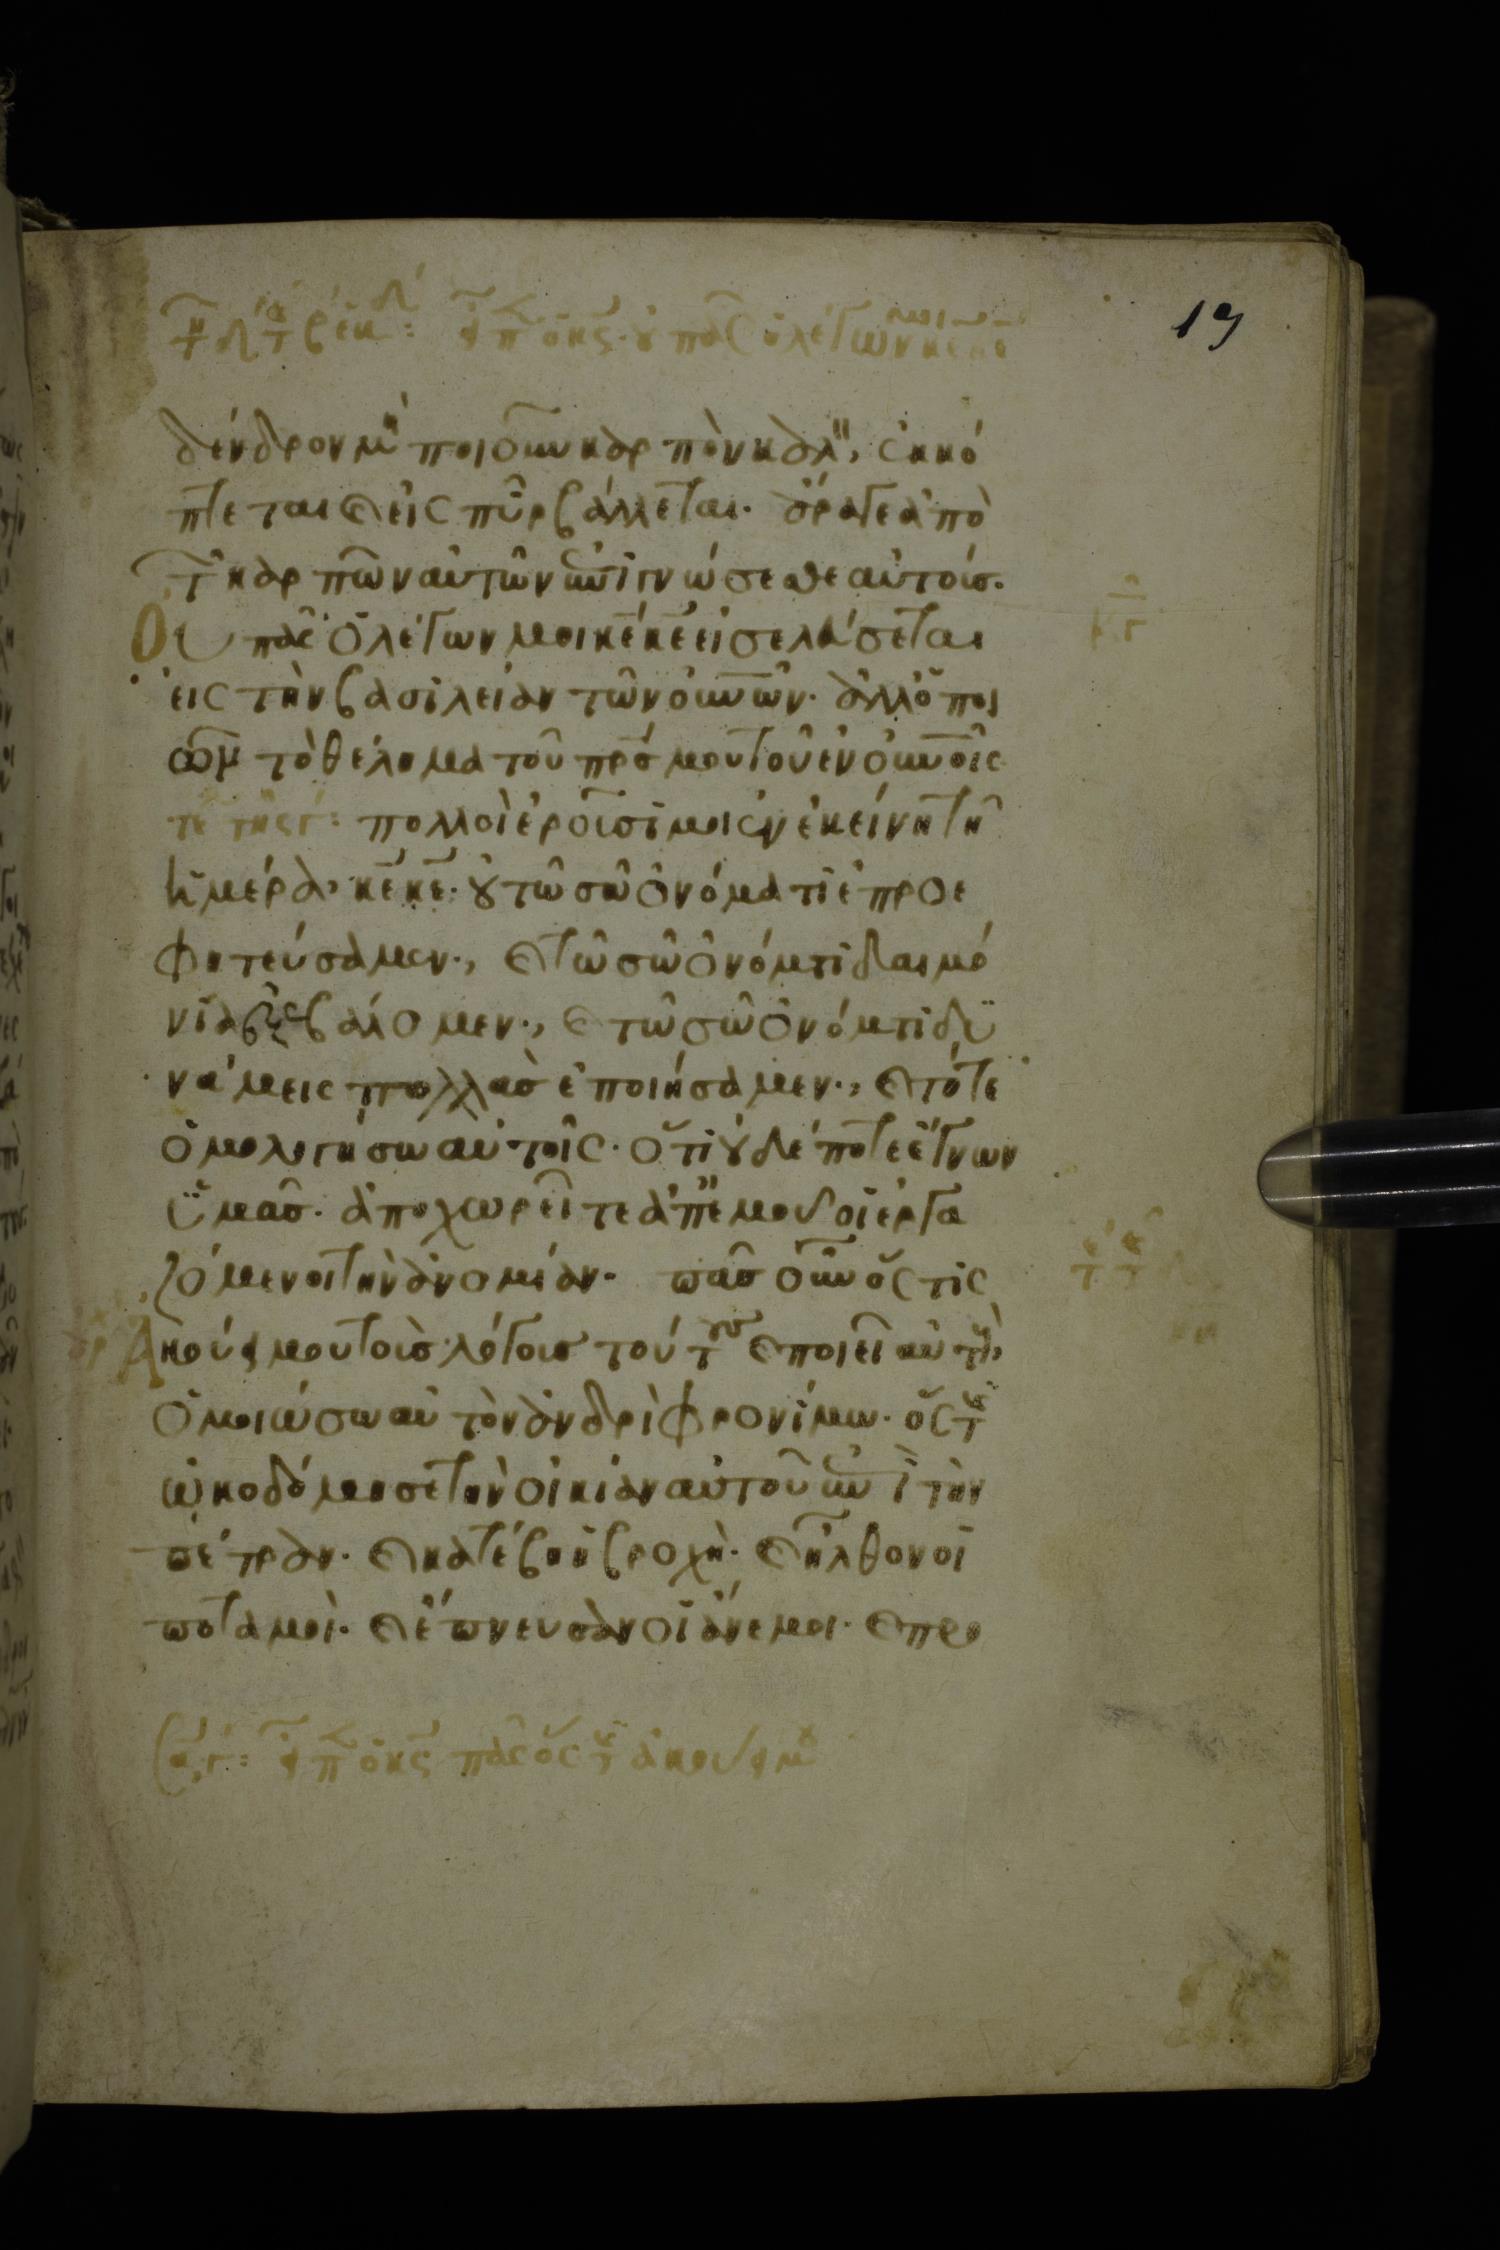 19
δένδρον μὴ ποιοῦν καρπὸν καλὸν, ἐκκό
πτεται ϗ εἰς πῦρ βάλλεται. ἄραγε ἀπὸ
τ καρπῶν αὐτῶν ἐπιγνώσεσθε αὐτούσ.
Οὐ πᾶς ὁ λέγων μοι κε κε εἰσελεύσεται
εἰς τὴν βασιλείαν τῶν οὐνῶν. ἀλλ ὁ ποι
ῶν τὸ θέλημα τοῦ πρσ μου τοῦ ἐν οὐνοῖς
πολλοὶ ἐροῦσί μοι ἐν ἐκείνη τῆ
ἡμέρα, κε κε. οὐ τῶ σῶ ὀνόματι ἐπροε
φητεύσαμεν., ϗ τῶ σῶ ὀνόμτι δαιμό
νια ἐξεβάλομεν., ϗ τῶ σῶ ὀνόμτι δυ
νάμεις πολλὰσ ἐποιήσαμεν., ϗ τότε
ὁμολογήσω αὐτοῖς. ὅτι οὐδέποτε ἔγνων
ὑμᾶσ. ἀποχωρεῖτε ἀπ ἐμοῦ οἱ ἐργα
ζόμενοι τὴν ἀνομίαν. πᾶσ οὖν ὅς τις
Ἀκούει μου τοὺσ λόγουσ τούτουσ ϗ ποιεῖ αὐτοὺς,
ὁμοιώσω αὐτὸν ἀνδρὶ φρονίμω. ὅς τ
ὠκοδόμησε τὴν οἰκίαν αὐτοῦ ἐπὶ τὴν
πέτραν. ϗ κατέβη ἡ βροχὴ. ϗ ἦλθον οἱ
ποταμοὶ. ϗ ἔπνευσαν οἱ ἄνεμοι. ϗ προ
πᾶς ὅς τ ἀκούει μου